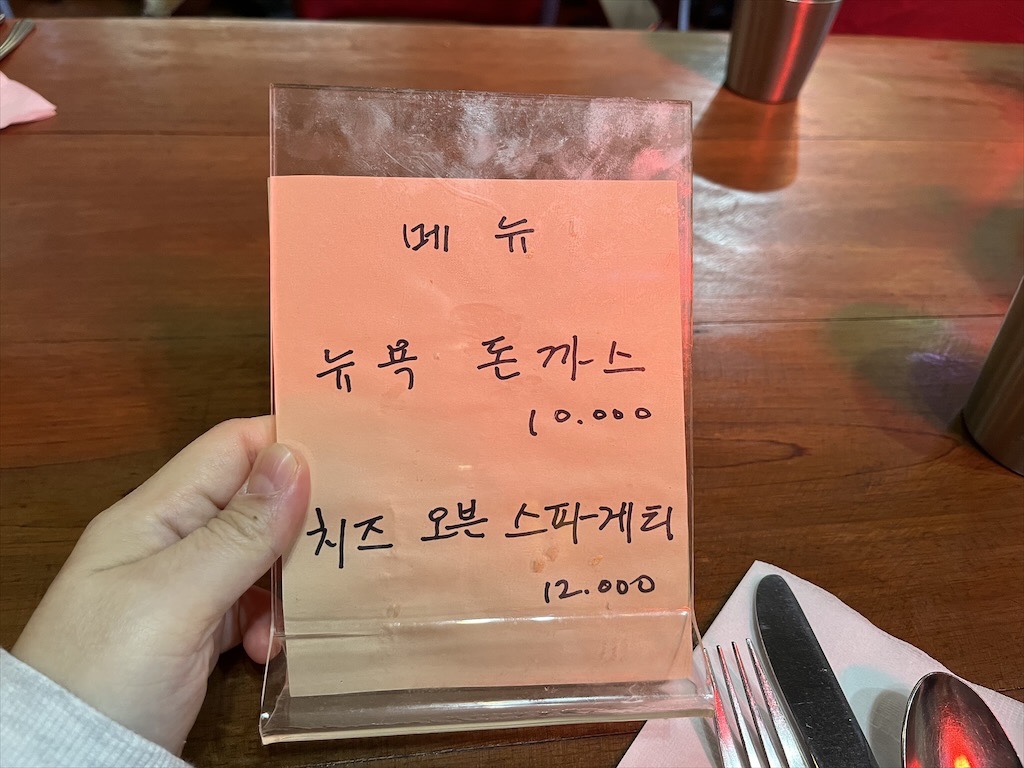 메 뉴
뉴욕 돈까스
10.000
치즈 오븐 스파게티
12.000